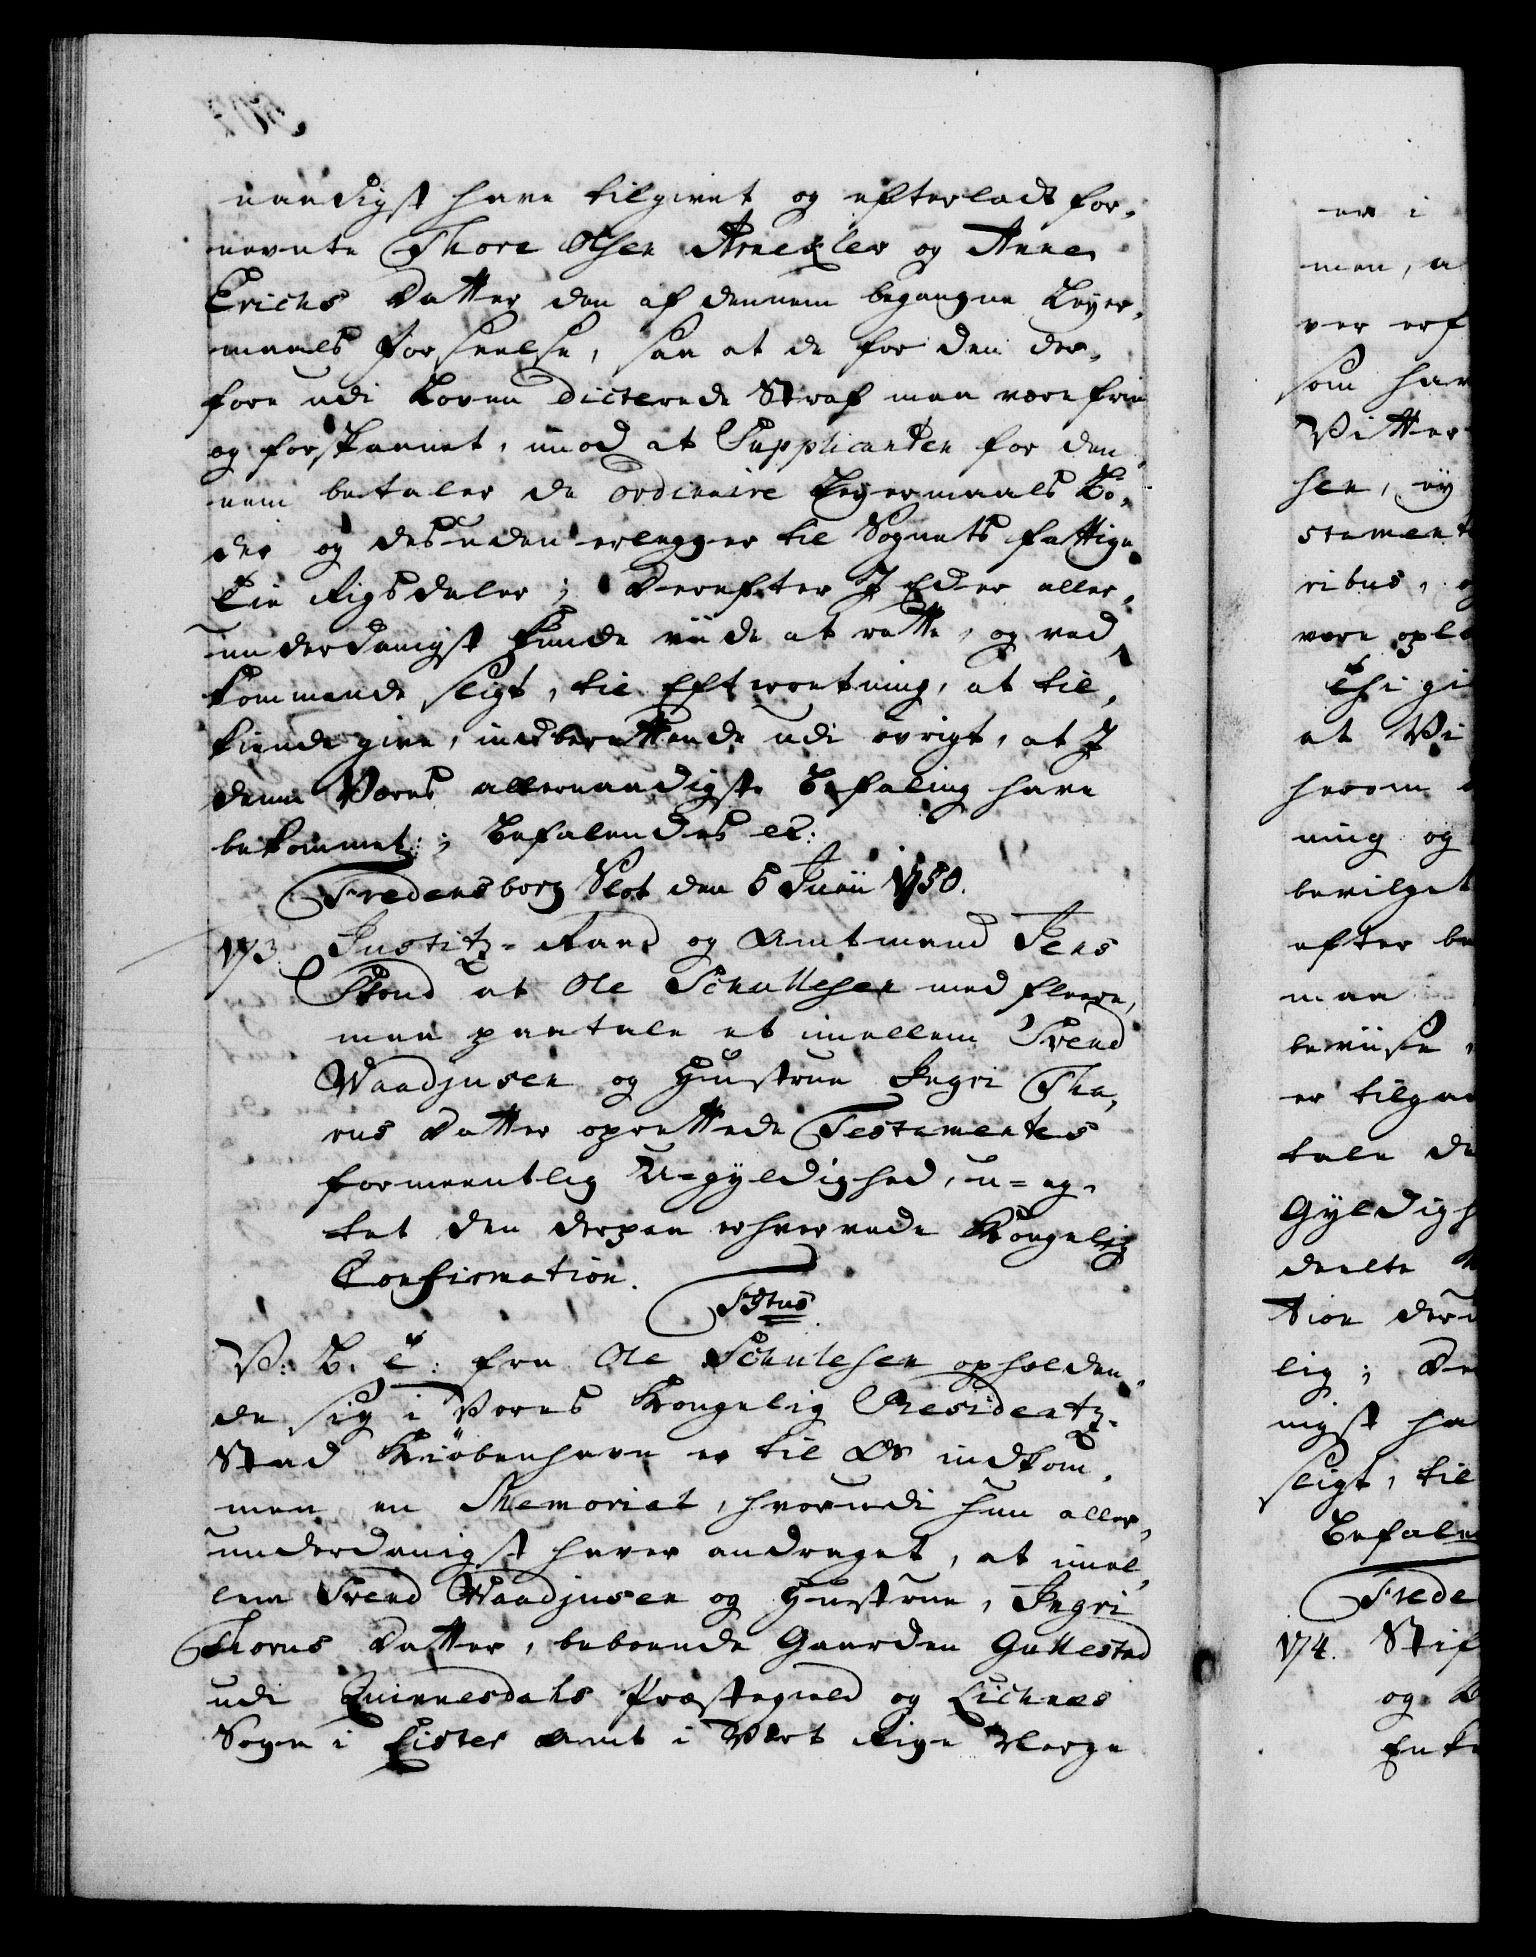 naadigst have tilgivet og efterladt for-
nevnte Thore Olsen Arnekler og Anne
Erichs Datter den af dennem begangne Leyer-
maals Forseelse, saa at de for den der-
fore udi Loven dicterede Straf maa være frie
og forskaanet, imod at Supplicanten for den-
nem betaler de ordinaire Leyermaals Bö-
der og desuden erlegger til Sognets fattige
Tie Rigsdaler; Derefter I Eder aller-
underdanigst kunde viide at rette, og ved-
kommende sligt, til Efterretning, at til-
kiende give, indberettende udi övrigt, at I
denne Vores allernaadigste Befaling have
bekommet; Befalendes etc:
Fredensborg Slot den 5 Junii 1750.
173. Justitz-Raad og Amtmand Jens
Skoud at Ole Schullesen med fleere,
maa paatale et imellem Svend
Waadjusen og Hustrue Ingri Tho-
rus Datter oprettede Testamentes
formeentlig U-gyldighed, u-ag-
tet den derpaa erhvervede Kongelig
Confirmation.
V: B. T: fra Ole Schulesen opholden-
de sig i Vores Kongelig Residentz-
Stad Kiöbenhavn er til Os indkom-
men en Memorial, hvorudi hun aller-
underdanigst haver andraget, at imel-
lem Svend Waadjusen og Hustrue, Ingri
Thorus Datter, beboende Gaarden Gullestad
udi Quinnesdahls Præstegield og Lichnæs
Sogn i Lister Amt i Vort Rige Norge
er i
men, a
ver erf
som har
Vitter
sen, ey
stament
ribus, o
være opl
Thi gi
at Vi
herom
ning og
bevilget
efter be
maa
beviise
er tilgar
tale de
Gyldigh
deelte
tion der
lig; De
nigst ha
sligt, til
Befale
Frede
174. Stif
og B
Enke